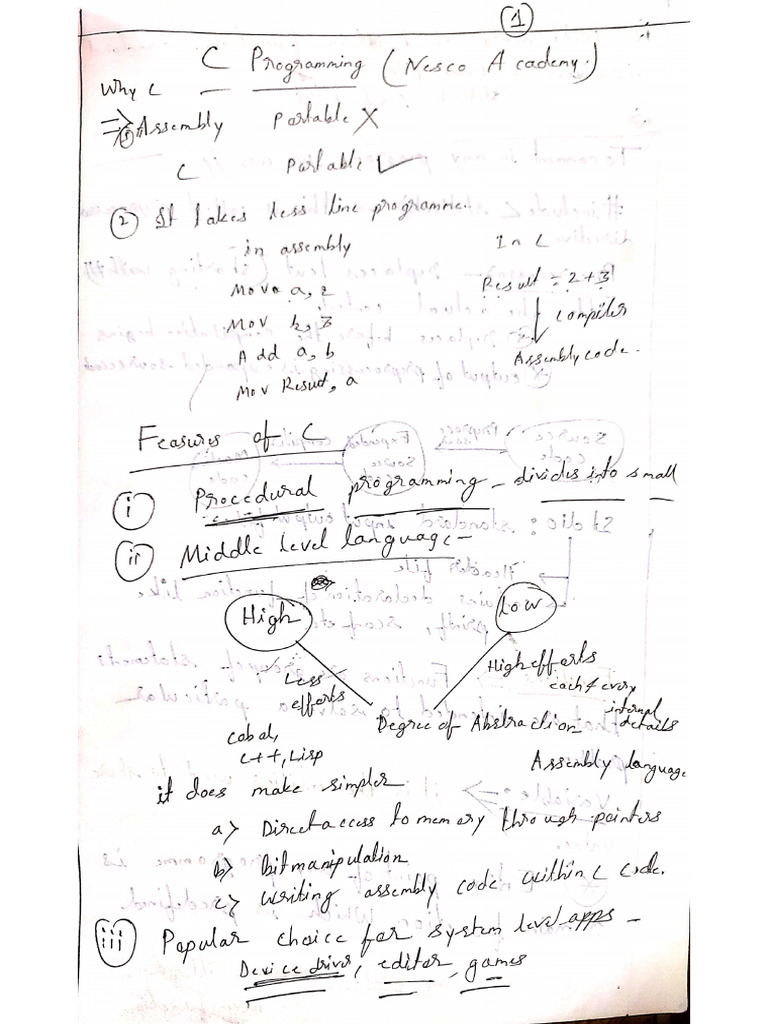 1
C Programming (Nesco Academy.)
Why C
⇒ ① Assembly Portable X
C Portable ✓
② It takes less line programme.
in assembly In C
Mov a, 2 Result = 2+3
Mov b, 3 ↓ Compiler
Add a, b Assembly code.
Mov Result, a
Feasures of C
i Procedural programming - divides into small
ii Middle level language -
High Low
Less efforts High efforts
each & every internal details
Degree of Abstraction
Cobal,
C++, Lisp Assembly language
it does make simpler
a> Direct access to memory through pointers
b> bit manipulation
c> writing assembly code within C code.
iii Popular choice for system level apps -
Device driver, editor, games